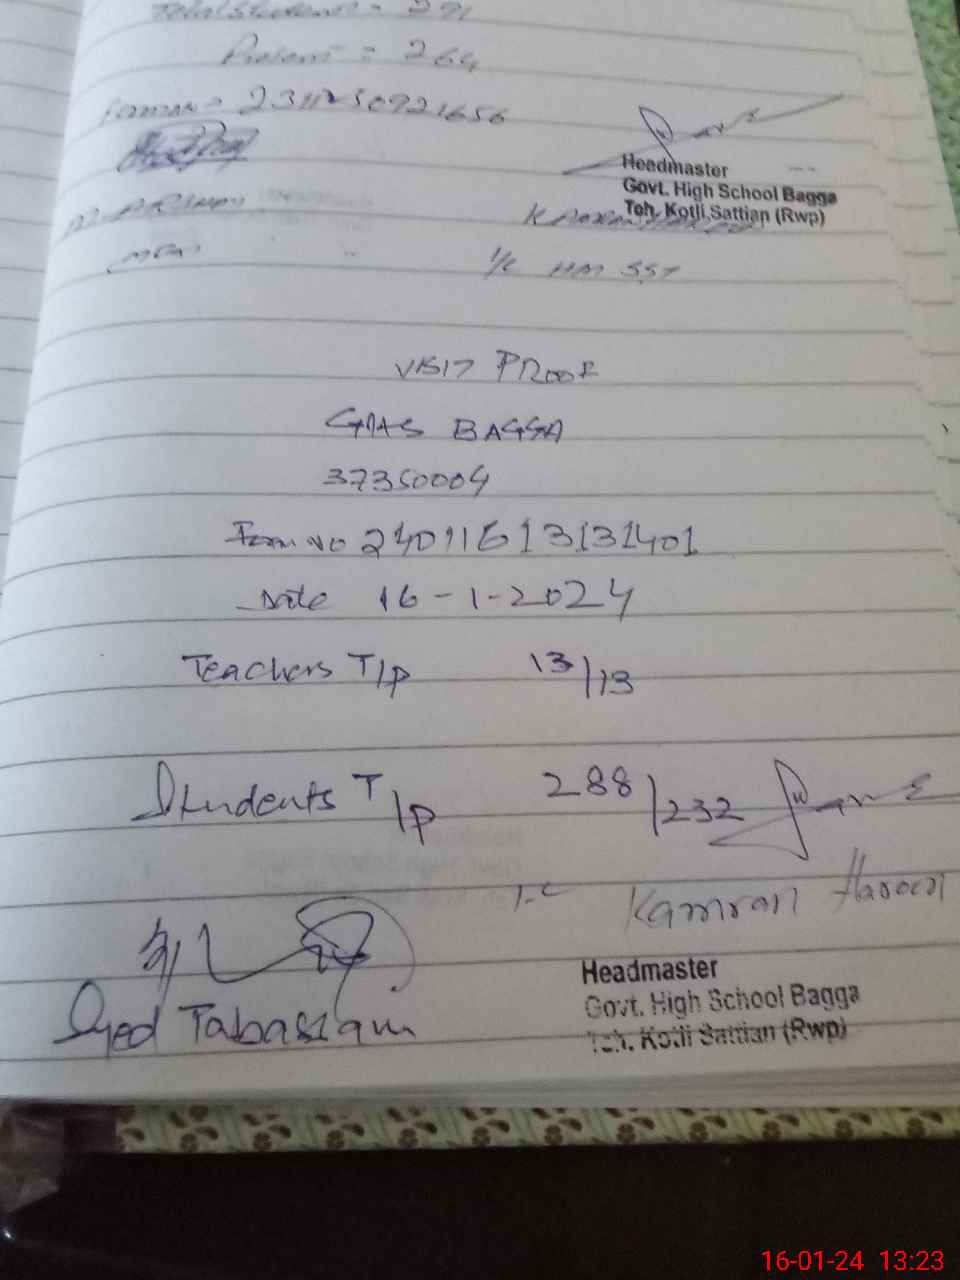 Total Students = 291
Present = 264
Headmaster
Govt. High School Bagga
Teh. Kotli Sattian (Rwp)
I/C HM SST
VISIT PROOF
GHS BAGGA
37350004
Form No 24011613131401
Date 16-1-2024
Teachers T/P 13/13
Students T/P 288/232
I-C Kamran Haroon
Syed Tabassam
Headmaster
Govt. High School Bagga
Teh. Kotli Sattian (Rwp)
16-01-24 13:23